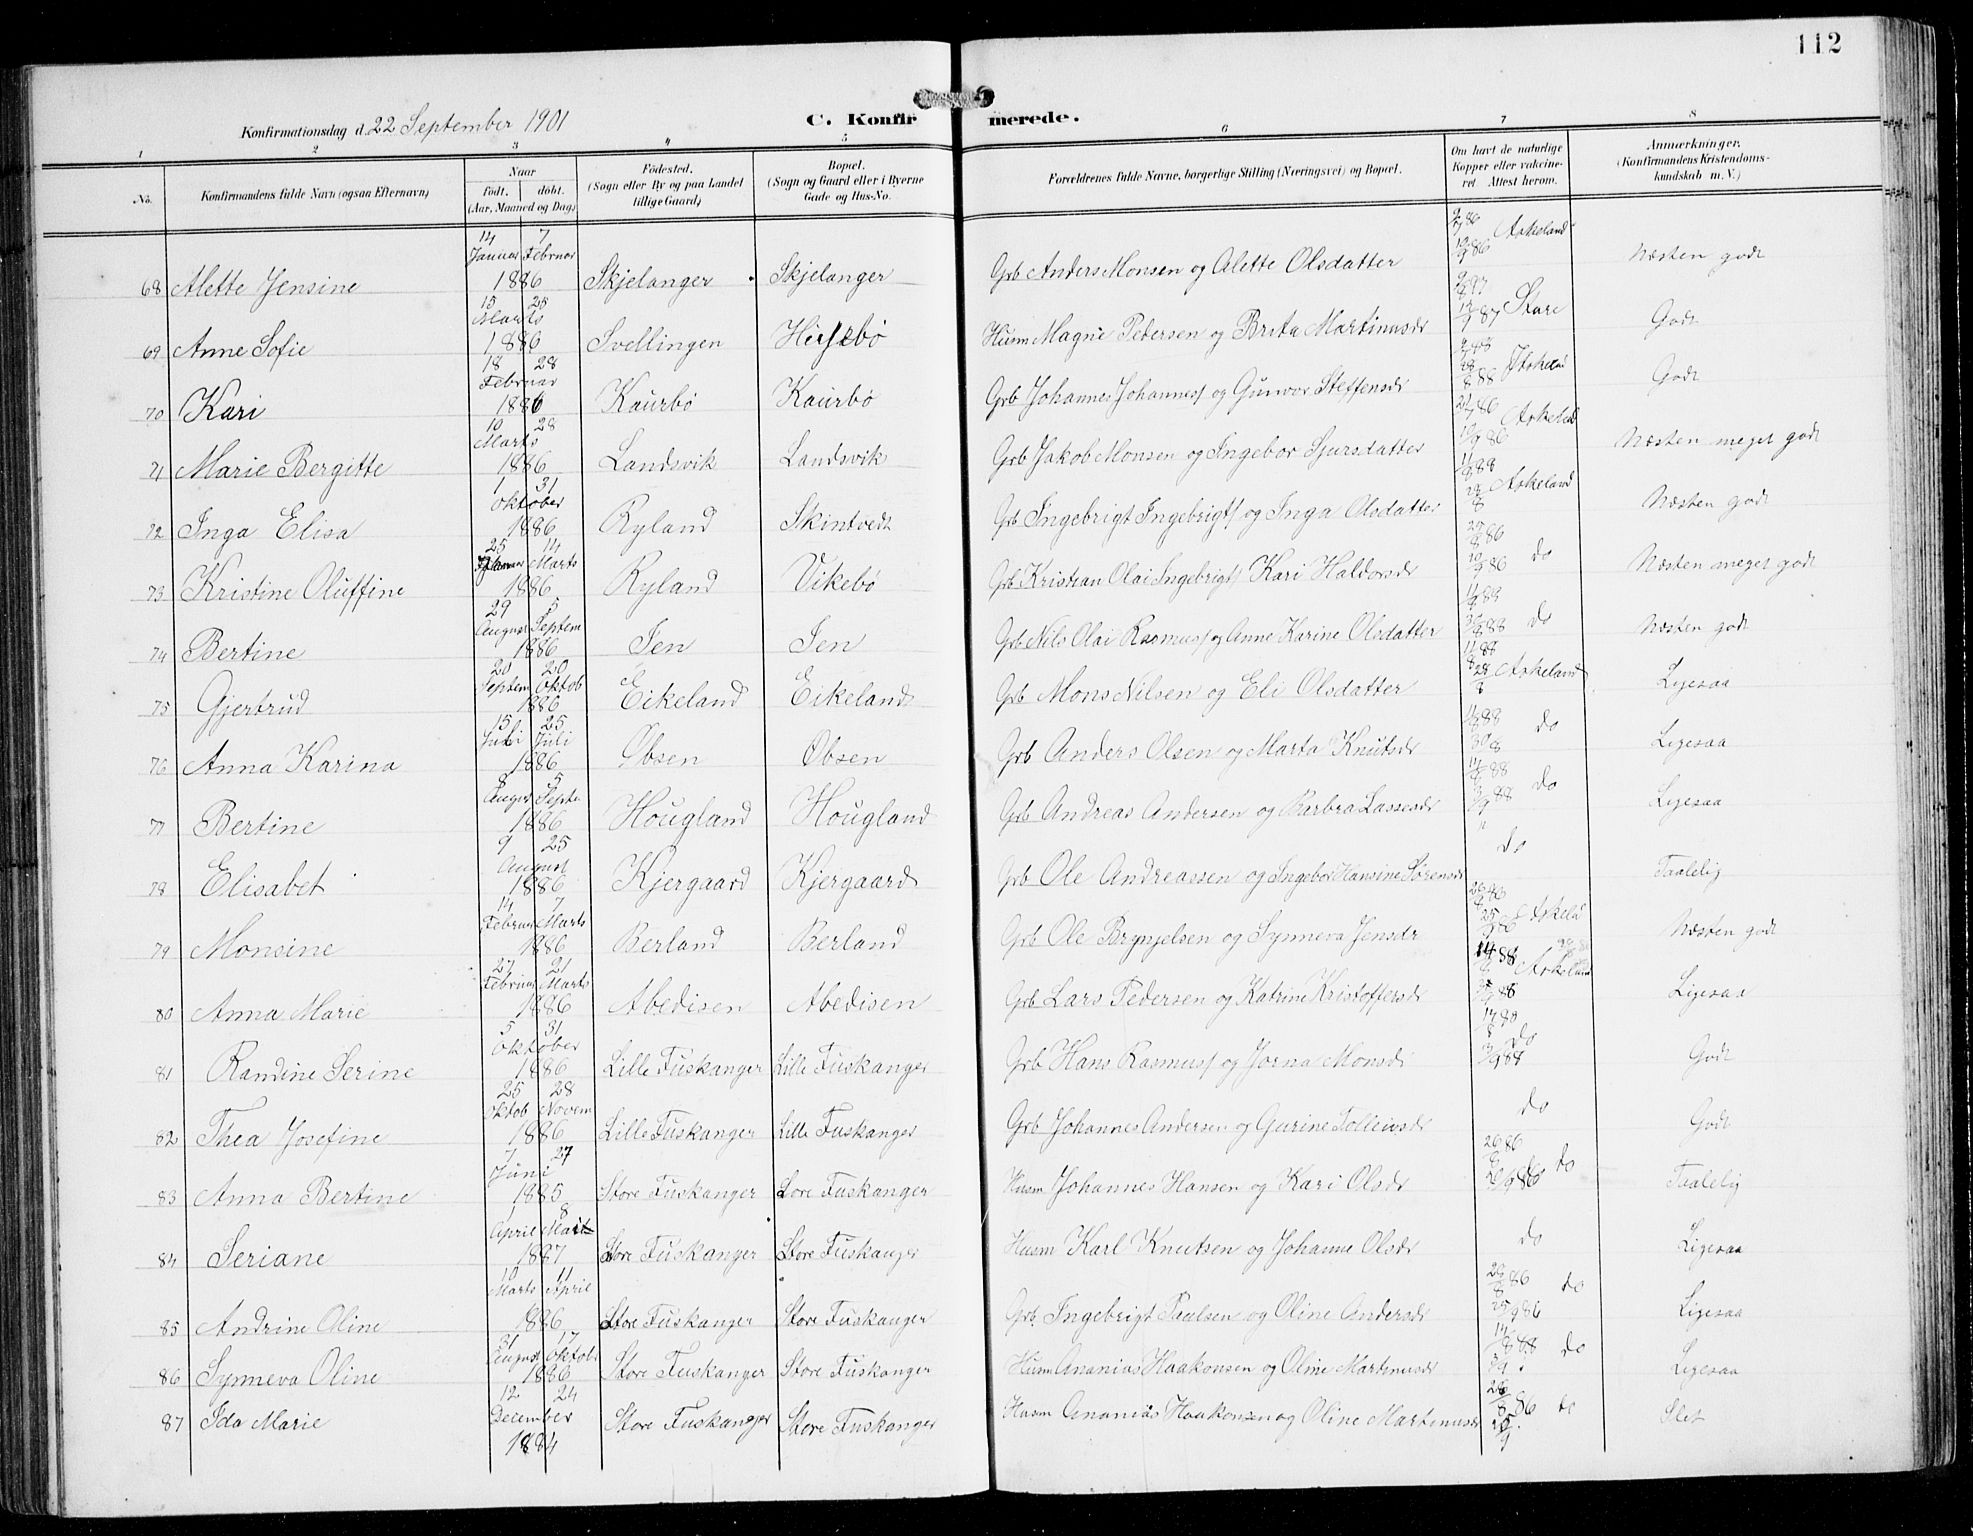 112
Konfirmationsdag d. 22 September 1901 C. Konfirmerede.
1 2 3 4 5 6 7 8
No. Konfirmandens fulde Navn (ogsaa Efternavn) Naar født. døbt. (Aar, Maaned og Dag) Fødested. (Sogn eller By og paa Landet tillige Gaard) Bopæl. (Sogn og Gaard eller i Byerne Gade og Hus-No. Forældrenes fulde Navne, borgerlige Stilling (Næringsvei) og Bopæl. Om havt de naturlige Kopper eller vakcineret. Attest herom. Anmærkninger. (Konfirmandens Kristendomskundskab m. V.)
68 Alette Jensine 14 Januar 7 Februar 1886 Skjelanger Skjelanger Grb Anders Monsen og Alette Olsdatter Askeland Næsten godt
69 Anne Sofie 15 25 Marts 1886 Svellingen Husm Magne Pedersen og Brita Martinusdr Stare Godt
70 Kari 18 28 Februar 1886 Kaurbø Kaurbø Grb Johannes Johannes/ og Gunvor Steffensdr Godt
71 Marie Bergitte 10 28 Marts 1886 Landsvik Landsvik Grb Jakob Monsen og Ingebor Sjursdatter Næsten meget godt
72 Inga Elisa 1 31 Oktober 1886 Ryland Skintvedt Grb Ingebrigt Ingebrigt/ og Inga Olsdatter Askeland Næsten godt
73 Kristine Oluffine 25 14 Marts 1886 Ryland Vikebø Grb Kristian Olai Ingebrigt/ Kari Haldorsdr do Næsten meget godt
74 Bertine 29 August 5 Septem 1886 Jen Jen Grb Nils Olai Rasmus/ og Anne Karine Olsdatter do Næsten godt
75 Gjertrud 20 Septem 20 Oktob 1886 Eikeland Eikeland Grb Mons Nilsen og Eli Olsdatter Askeland Ligesaa
76 Anna Karina 15 Juli 25 Juli 1886 Øbsen Øbsen Grb Anders Olsen og Marta Knutsdr do Ligesaa
77 Bertine 8 August 5 Septe 1886 Hougland Hougland Grb Andreas Andersen og Barbra Lassesdr do Ligesaa
78 Elisabet 9 25 August 1886 Kjergaard Kjergaard Grb Ole Andreassen og Ingebor Hansine Sørensdr do Taalelig
79 Monsine 14 Februar 7 Marts 1886 Berland Berland Grb Ole Brynjelsen og Synneva Jensdr Næsten godt
80 Anna Marie 27 Februar 21 Marts 1886 Abedisen Abedisen Grb Lars Pedersen og Katrine Kristoffersdr Askeland Ligesaa
81 Randine Serine 5 31 Oktober 1886 Lille Fuskanger Lille Fuskanger Grb Hans Rasmus/ og Jorna Monsdr do Godt
82 Thea Josefine 25 Oktob 28 Novem 1886 Lille Fuskanger Lille Fuskanger Grb Johannes Andersen og Gurine Tolleivsdr do Godt
83 Anna Bertine 7 27 Juni 1885 Store Fuskanger Fuskanger Husm Johannes Hansen og Kari Olsdr do Taalelig
84 Seriane 1 April 8 1887 Store Fuskanger Store Fuskanger Husm Karl Knutsen og Johanne Olsdr do Ligesaa
85 Andrine Oline 10 Marts 11 April 1886 Store Fuskanger Store Fuskanger Grb. Ingebrigt Paulsen og Oline Andersdr do Ligesaa
86 Synneva Oline 31 August 17 Oktob 1886 Store Fuskanger Store Fuskanger Husm Ananias Haakonsen og Oline Martinusdr do Ligesaa
87 Ida Marie 12 24 December 1884 Store Fuskanger Store Fuskanger Husm Ananias Haakonsen og Oline Martinusdr do Slet